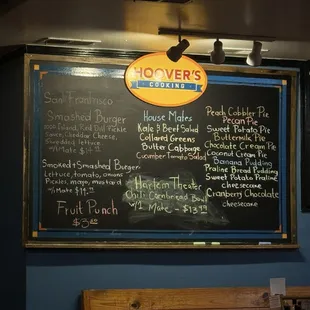 HOOVER'S
COOKING
San Francisco
Smashed Burger
1000 Island, Red Dill Pickle
Sauce, Cheddar Cheese,
Shredded lettuce
w/ Mate - $14.
Smoked & Smashed Burger
Lettuce, tomato, onions
Pickles, mayo, mustard
w/ Mate $14.
Fruit Punch
$3.
House Mates
Kale & Beet Salad
Collard Greens
Butter Cabbage
Cucumber Tomato Salad
Harlem Theater
Chili Cornbread Bowl
w/ 1 Mate - $13
Peach Cobbler Pie
Pecan Pie
Sweet Potato Pie
Buttermilk Pie
Chocolate Cream Pie
Coconut Cream Pie
Banana Pudding
Praline Bread Pudding
Sweet Potato Praline
cheesecake
Cranberry Chocolate
cheesecake